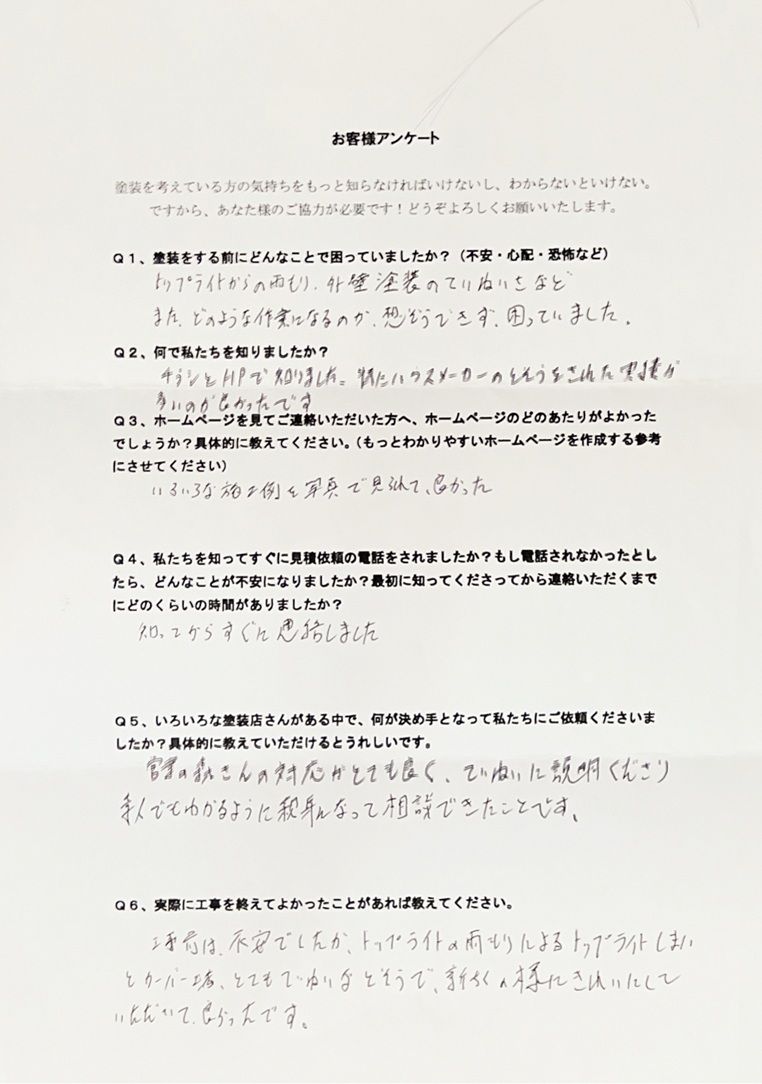 お客様アンケート
塗装を考えている方の気持ちをもっと知らなければいけないし、わからないといけない。
ですから、あなた様のご協力が必要です！どうぞよろしくお願いいたします。
Ｑ１、塗装をする前にどんなことで困っていましたか？（不安・心配・恐怖など）
トップライトからの雨もり、外壁塗装のていねいさなど
また、どのような作業になるのか、想ぞうできず、困っていました。
Ｑ２、何で私たちを知りましたか？
チラシとHPで知りました。特にハウスメーカーのとそうをされた実績が
多いのが良かったです
Ｑ３、ホームページを見てご連絡いただいた方へ、ホームページのどのあたりがよかった
でしょうか？具体的に教えてください。（もっとわかりやすいホームページを作成する参考
にさせてください）
いろいろな施工例を写真で見られて、良かった
Ｑ４、私たちを知ってすぐに見積依頼の電話をされましたか？もし電話されなかったとし
たら、どんなことが不安になりましたか？最初に知ってくださってから連絡いただくまで
にどのくらいの時間がありましたか？
知ってからすぐに連絡しました
Ｑ５、いろいろな塗装店さんがある中で、何が決め手となって私たちにご依頼くださいま
したか？具体的に教えていただけるとうれしいです。
営業の森さんの対応がとても良く、ていねいに説明くださり
素人でもわかるように親身になって相談できたことです。
Ｑ６、実際に工事を終えてよかったことがあれば教えてください。
工事前は、不安でしたが、トップライトの雨もりによるトップライトしまい
とカバー工事、とてもていねいなとそうで、新ちくの様にきれいにして
いただいて、良かったです。